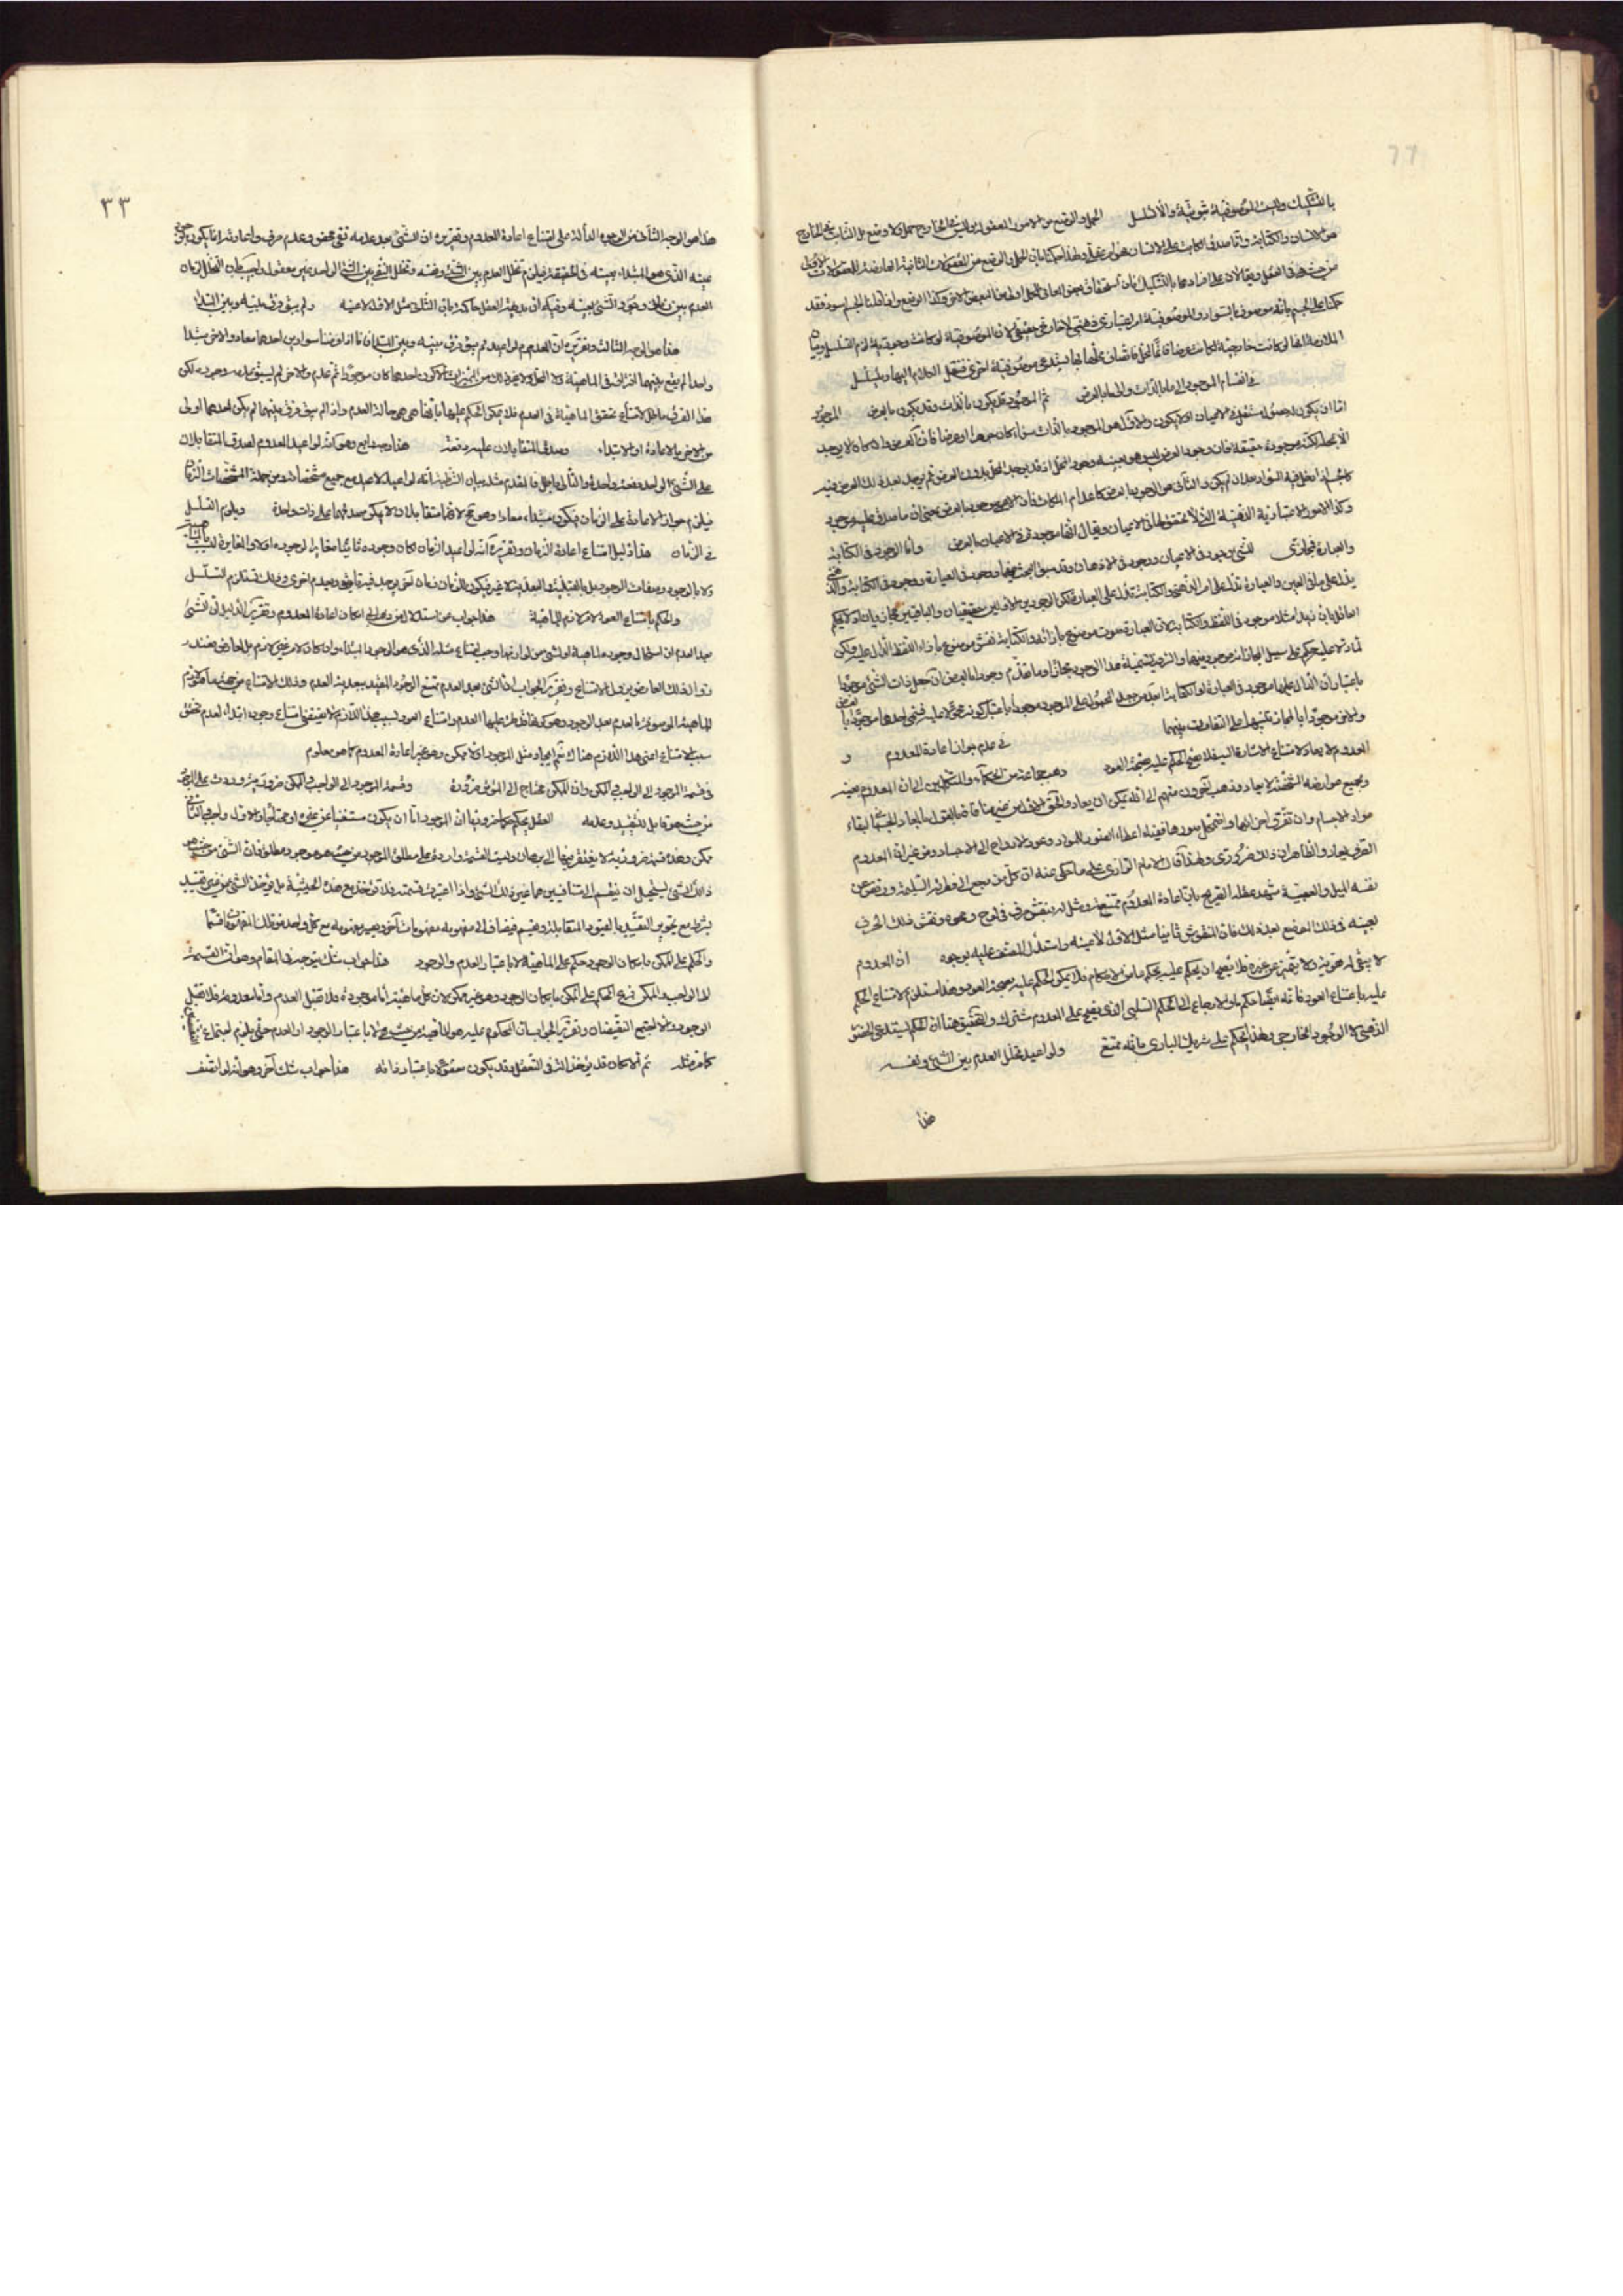 بالتشكيك وليست الموصوفية ثبوتية والا تسلسل الحمل والوضع من الامور المعقولة اذ ليس في الخارج حمل ولا وضع بل الثابت في الخارج
هو الانسان والكتابة واما صدق الكاتب على الانسان فهو امر عقلي ولهذا حكمنا بان الحمل والوضع من المعقولات الثانية العارضة للمعقولات الاولى
من حيث هي في العقل ويقالان على افرادهما بالتشكيك فان استحقاق بعض المعاني للحمل اولى من البعض الاخر وكذا الوضع واذا قلنا الجسم اسود فقد
حكمنا على الجسم بانه موصوف بالسواد والموصوفية امر اعتباري ذهني لا خارجي حقيقي لان الموصوفية لو كانت وجودية لزم التسلسل بيان
الملازمة انها لو كانت خارجية لكانت عرضا قائما بالمحل فاتصاف محلها بها يستدعي موصوفية اخرى فننقل الكلام اليها ويتسلسل
في انقسام الموجود الى ما بالذات والى ما بالعرض ثم الموجود قد يكون بالذات وقد يكون بالعرض الموجود
اما ان يكون له حصول مستقل في الاعيان او لا يكون والاول هو الموجود بالذات سواء كان جوهرا او عرضا فان العرض وان كان لا يوجد
الا بمحله لكنه موجود حقيقة فان وجود العرض ليس هو بعينه وجود المحل اذ قد يوجد المحل بدون العرض ثم يوجد بعد ذلك العرض فيه
كالجسم اذا حل فيه السواد بعد ان لم يكن والثاني هو الموجود بالعرض كاعدام الملكات فان الاعمى موجود بالعرض بمعنى ان ما صدق عليه موجود
وكذا الامور الاعتبارية الذهنية التي لا تحقق لها في الاعيان ويقال انها موجودة في الاعيان بالعرض واما الوجود في الكتابة
والعبارة فمجازي للشيء وجود في الاعيان ووجود في الاذهان وقد سبق البحث فيهما ووجود في العبارة ووجود في الكتابة والذهني
يدل على ما في العين والعبارة تدل على الامر الذهني والكتابة تدل على العبارة لكن الوجودين الاولين حقيقيان والباقيين مجازيان اذ لا يحكم
العاقل بان زيدا مثلا موجود في اللفظ والكتابة لان العبارة صوت موضوع بازائه والكتابة نقش موضوع بازاء اللفظ الدال عليه ولكن
لما دلا عليه حكم على سبيل المجاز انه موجود فيهما
باعتبار ان الدال عليهما موجود في العبارة او الكتابة ابعد من
والاخر موجودا بالمجاز تنبيها على التفاوت بينهما في عدم جواز اعادة المعدوم و
المعدوم لا يعاد لامتناع الاشارة اليه فلا يصح الحكم عليه بصحة العود ذهب جماعة من الحكماء والمتكلمين الى ان المعدوم بعينه
وبجميع عوارضه المشخصة لا يعاد وذهب آخرون منهم الى انه يمكن ان يعاد والحق
مواد الاجسام وان تفرق اجزائها
الفرق بمعاد والظاهر ان ذلك ضروري ولهذا قال الامام الرازي على ما حكي عنه ان كل من رجع الى فطرته السليمة ورفض عن
نفسه الميل والعصبية شهد عقله الصريح بان اعادة المعدوم ممتنع ومثل له بنقش حرف في لوح ومحوه ونقش ذلك الحرف
بعينه في ذلك الموضع بعد ذلك فان النقوش ثانيا مثل الاول لا عينه واستدل المصنف عليه بوجوه ان المعدوم
لا يبقى له هوية ولا يتميز عن غيره فلا يصح ان يحكم عليه بحكم ما من الاحكام فلا يمكن الحكم عليه بصحة العود وهذا
عليه بامتناع العود فانه ايضا حكم ما والارجاع الى الحكم السلبي الذي يصح على المعدوم مشترك والتحقيق هنا ان الحكم يستدعي الحضور
الذهني لا الوجود الخارجي ولهذا يحكم على شريك الباري بانه ممتنع ولو اعيد تخلل العدم بين الشيء ونفسه
هذا
٣٣
هذا هو الوجه الثاني من الوجوه الدالة على امتناع اعادة المعدوم وتقريره ان الشيء بعد عدمه نفي محض وعدم صرف واعادته انما يكون بوجود
عينه الذي هو المبتدأ بعينه في الحقيقة فيلزم تخلل العدم بين الشيء ونفسه وتخلل النفي بين الشيء الواحد غير معقول
العدم بين زماني وجود الشيء بعينه وفيه ان بديهة العقل حاكمة بان الثاني مثل الاول لا عينه ولم يبق فرق بينه وبين المبتدأ
هذا هو الوجه الثالث وتقريره ان المعدوم لو اعيد لم يبق فرق بينه وبين المبتدأ فانا اذا فرضنا سوادين احدهما معاد والاخر مبتدأ
وجدا لم يقع بينهما افتراق في الماهية ولا المحل ولا غير ذلك من المميزات الا كون احدهما كان موجودا ثم عدم والاخر لم يسبق عدمه وجوده لكن
هذا الفرق باطل لامتناع تحقق الماهية في العدم فلا يمكن الحكم عليها بانها هي هي حالة العدم واذا لم يبق فرق بينهما لم يكن احدهما اولى
من الاخر بالاعادة او الابتداء وصدق المتقابلان عليه دفعة هذا وجه رابع وهو انه لو اعيد المعدوم لصدق المتقابلان
على الشيء الواحد دفعة واحدة والتالي باطل فالمقدم مثله بيان الشرطية انه لو اعيد لاعيد مع جميع مشخصاته ومن جملة المشخصات الزمان
فيلزم جواز الاعادة على الزمان فيكون مبتدأ معادا وهو مح لانهما متقابلان لا يمكن صدقهما على ذات واحدة ويلزم التسلسل
في الزمان هذا دليل امتناع اعادة الزمان وتقريره انه لو اعيد الزمان لكان وجوده ثانيا مغايرا لوجوده اولا والمغايرة ليست بالماهية
ولا بالوجود وصفات الوجود بل بالقبلية والبعدية لا غير فيكون للزمان زمان آخر يوجد فيه تارة ويعدم اخرى وذلك يستلزم التسلسل
والحكم بامتناع العود لامر لازم للماهية هذا جواب عن استدلال من ذهب الى امكان اعادة المعدوم وتقرير الدليل ان الشيء
بعد العدم ان استحال وجوده لماهيته او لشيء من لوازمها وجب امتناع مثله الذي هو الوجود المبتدأ وان كان لامر غير لازم بل لعارض فعند
زوال ذلك العارض يزول الامتناع وتقرير الجواب ان الشيء بعد العدم ممتنع الوجود المقيد ببعدية العدم وذلك الامتناع
للماهية الموصوفة بالعدم بعد الوجود
سبب الامتناع اعني هذا اللازم هناك نعم ايجاد مثل الموجود اولا ممكن وهو غير اعادة المعدوم كما هو معلوم
في قسمة الموجود الى الواجب والممكن وان الممكن محتاج الى المؤثر ضرورة وقسمة الموجود الى الواجب والممكن ضرورية وردت على الموجود
من حيث هو قابل للتقييد وعدمه العقل يحكم حكما ضروريا ان الموجود اما ان يكون مستغنيا عن غيره او محتاجا والاول واجب والثاني
ممكن وهذه قسمة ضرورية لا يفتقر فيها الى برهان وليست القسمة واردة على مطلق الموجود من حيث هو موجود مطلق فان الشيء من حيث هو
ذلك الشيء يستحيل ان ينقسم الى متنافيين هما غير ذلك الشيء واذا اعتبرت قسمته فلا تؤخذ مع هذه الحيثية بل يؤخذ الشيء
بشرط مع تجويز التقييد بالقيود المتقابلة
والحكم على الممكن بامكان الوجود حكم على الماهية لا باعتبار العدم والوجود هذا جواب شك يتوجه في المقام وهو ان القسمة
الى الواجب والممكن فرع الحكم على الممكن بامكان الوجود وهو غير ممكن لان كل ماهية اما موجودة فلا تقبل العدم واما معدومة فلا تقبل
الوجود والا اجتمع النقيضان وتقرير الجواب ان المحكوم عليه هو الماهية من حيث هي لا باعتبار الوجود او العدم حتى يلزم اجتماع
كما مر مثله ثم الامكان قد يؤخذ آلة في التعقل وقد يكون معقولا باعتبار ذاته هذا جواب شك آخر وهو انه لو اتصف